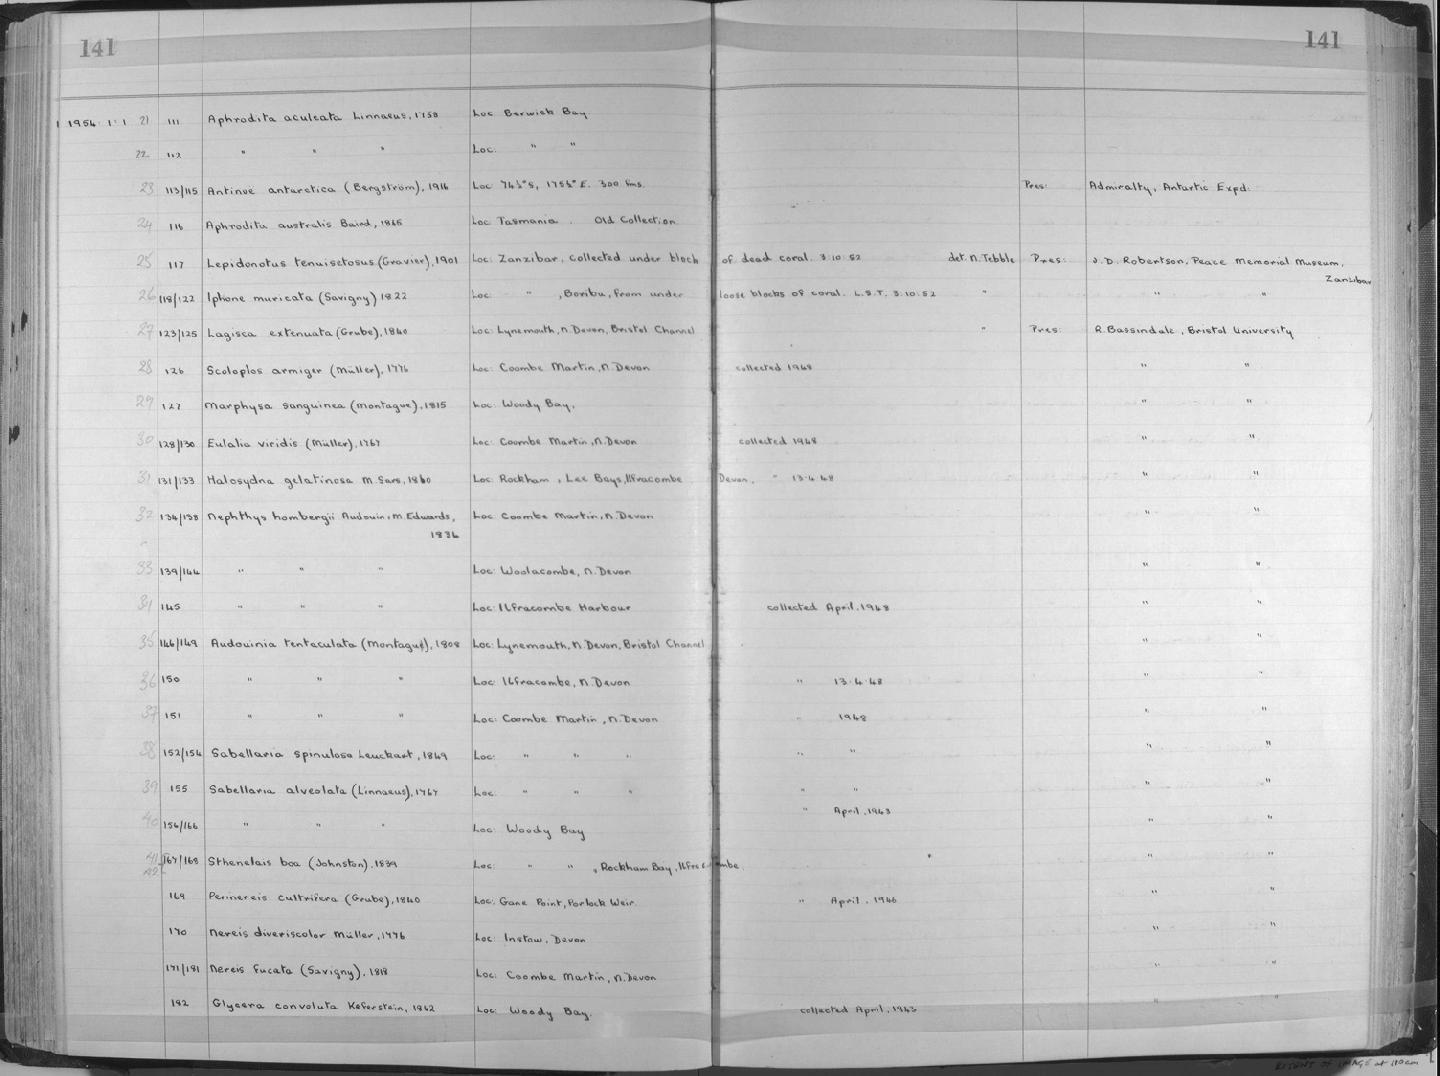 141 141
1 1954 1 1 21 111 Aphrodita aculeata Linnaeus, 1758 Loc Berwick Bay
22 112 " " " Loc: " "
23 113/115 Antinoë antarctica (Bergström), 1916 Loc 74½°S, 175½°E. 300 fms. Pres: Admiralty, Antartic Expd.
24 116 Aphrodita australis Baird, 1865 Loc Tasmania . Old Collection
25 117 Lepidonotus tenuisetosus (Gravier), 1901 Loc: Zanzibar, collected under block of dead coral. 3.10.52 det. N. Tebble Pres: J.D. Robertson, Peace Memorial Museum,
Zanzibar
26 118/122 Iphone muricata (Savigny) 1822 Loc: " , Boribu, from under loose blocks of coral. L.S.T. 3.10.52 " " "
27 123/125 Lagisca extenuata (Grube), 1840 Loc: Lynemouth, N. Devon, Bristol Channel " Pres: R. Bassindale, Bristol University
28 126 Scoloplos armiger (Müller), 1776 Loc: Coombe Martin, N. Devon collected 1948 " "
29 127 Marphysa sanguinea (Montague), 1815 Loc. Woody Bay, " "
30 128/130 Eulalia viridis (Müller), 1767 Loc: Coombe Martin, N. Devon collected 1948 " "
31 131/133 Halosydna gelatinosa M. Sars, 1860 Loc: Rockham, Lee Bays, Ilfracombe Devon, " 13.4.48 " "
32 134/138 Nephthys hombergii Audouin, M. Edwards, Loc Coombe Martin, N. Devon " "
1834
33 139/144 " " " Loc: Woolacombe, N. Devon " "
34 145 " " " Loc: Ilfracombe Harbour collected April, 1948 " "
35 146/149 Audouinia tentaculata (Montague), 1808 Loc: Lynemouth, N. Devon, Bristol Channel " "
36 150 " " " Loc: Ilfracombe, N. Devon " 13.4.48 " "
37 151 " " " Loc: Coombe Martin, N. Devon " 1948 " "
38 152/154 Sabellaria spinulosa Leuckart, 1849 Loc: " " " " " " "
39 155 Sabellaria alveolata (Linnaeus), 1767 Loc. " " " " " " "
40 156/166 " " " Loc: Woody Bay " April, 1943 " "
41 42 167/168 Sthenelais boa (Johnston), 1839 Loc: " " , Rockham Bay, Ilfracombe. " "
169 Perinereis cultrifera (Grube), 1840 Loc: Gane Point, Porlock Weir. " April, 1946 " "
170 Nereis diversicolor Müller, 1776 Loc: Instow, Devon " "
171/181 Nereis fucata (Savigny), 1818 Loc: Coombe Martin, N. Devon " "
182 Glycera convoluta Keferstein, 1862 Loc: Woody Bay. collected April, 1943 " "
EXTENT OF IMAGE at 110cm